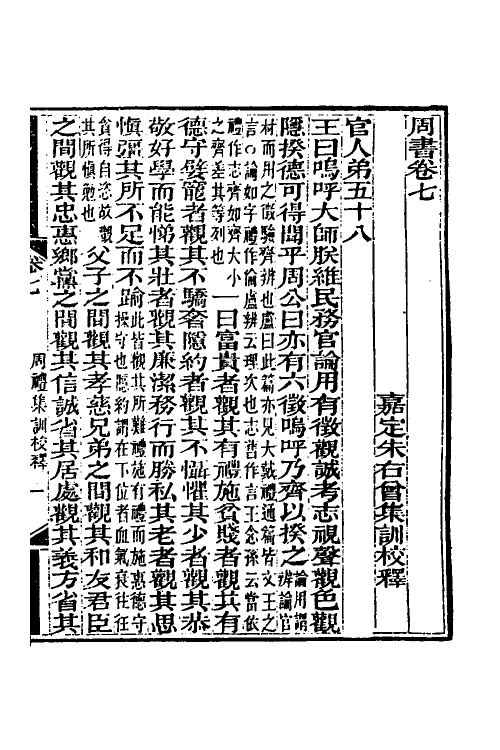 周書卷七
嘉定朱右曾集訓校釋
官人弟五十八
王曰嗚呼大師朕維民務官論用有徵觀誠考志視聲觀色觀
隱揆德可得聞乎周公曰亦有六徵嗚呼乃齊以揆之
辨論官
論用謂
材而用之徵驗齊辨也盧曰此篇亦見大戴禮通篇皆文王之
言○論如字禮作論盧辯云理次也志舊作言王念孫云當依
禮作志齊如齊大小
之齊差其等列也
一曰富貴者觀其有禮施貧賤者觀其有
德守嬖寵者觀其不驕奢隱約者觀其不懾懼其少者觀其恭
敬好學而能悌其壯者觀其廉潔務行而勝私其老者觀其思
慎彊其所不足而不
踰此皆觀其所難禮施有禮而施惠德守
操守也隱約謂在下位者血氣衰往往
貪得自恣故觀
其所慎勉也
父子之間觀其孝慈兄弟之間觀其和友君臣
之間觀其忠惠鄉黨之間觀其信誠省其居處觀其義方省其
卷七
周禮集訓校釋
一